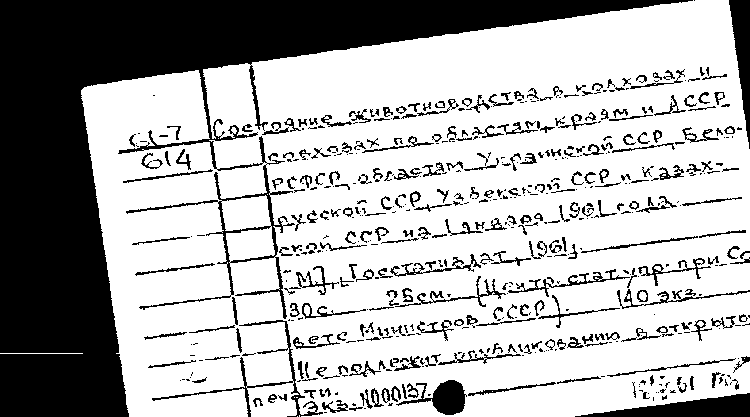 G1-7
614
Состояние животноводства в колхозах и
совхозах по областям, краям и АССР
РСФСР, областям Украинской ССР, Бело-
русской ССР, Узбекской ССР и Казах-
ской ССР на 1 января 1961 года.
[М], Госстатиздат, 1961,
30с. 25см. (Центр. стат. упр. при Со
вете Министров СССР). 140 экз.
Не подлежит опубликованию в открыто
печати.
Экз. N000137